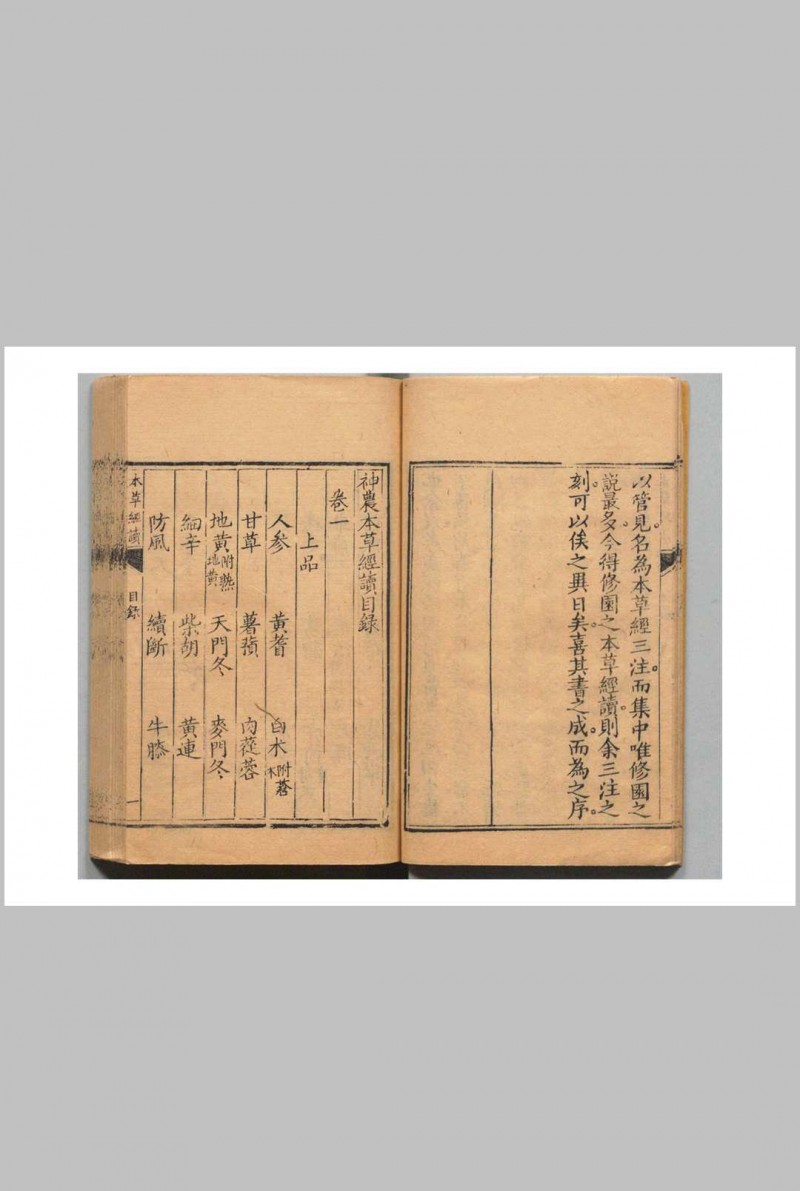 以管見名為本草經三注。而集中唯修園之
說最多。今得修園之本草經讀。則余三注之
刻。可以俟之異日矣。喜其書之成。而為之序。
神農本草經讀目録
卷一
上品
人參 黃蓍 白术附蒼术
甘草 薯蕷 肉蓯蓉
地黃附熟地黃 天門冬 麥門冬
細辛 柴胡 黃連
防風 續斷 牛膝
本草經讀 目録 一